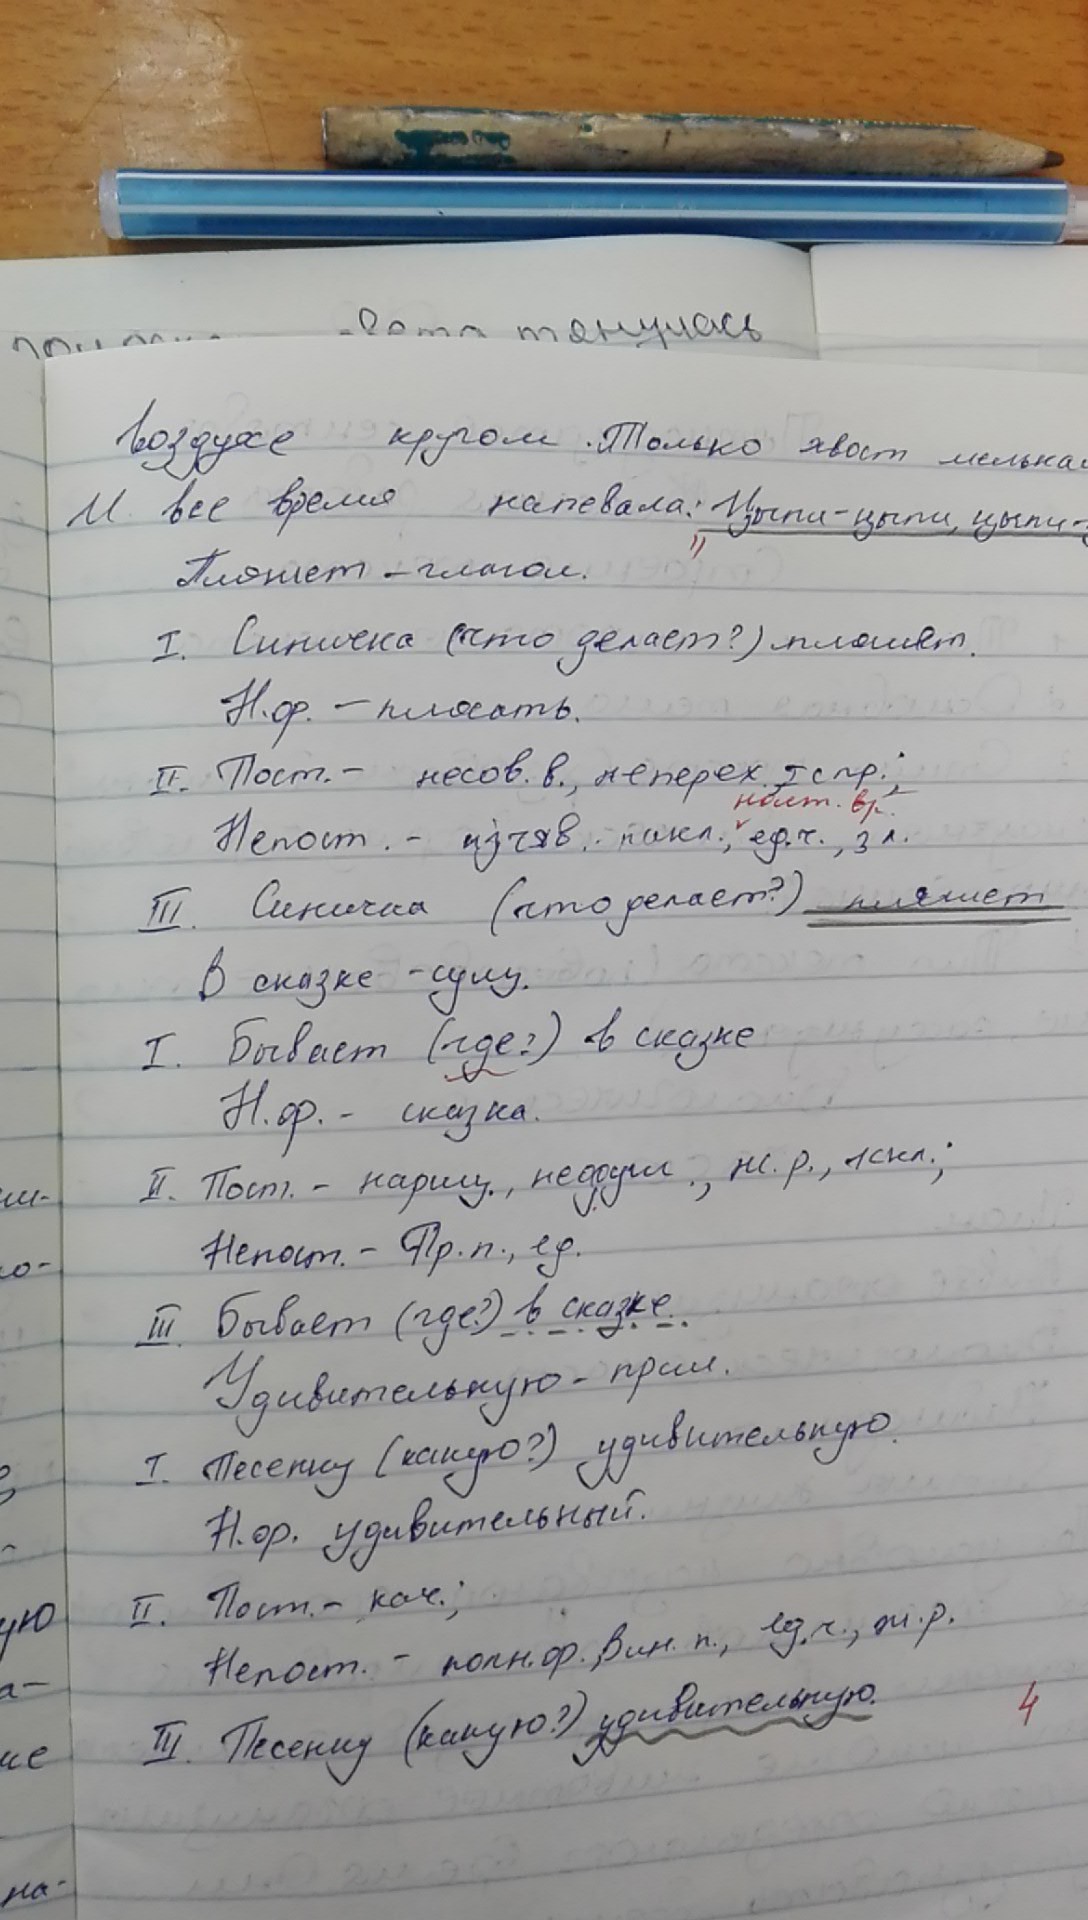 тянулась
воздухе кругом. Только хвост мелька
И все время напевала: Цыпи-цыпи, цыпи-
"
Пляшет - глагол.
I. Синичка (что делает?) пляшет.
Н.ф. - плясать.
II. Пост. - несов. в., неперех., I спр.;
наст. вр.
Непост. - изъяв. накл., ед.ч., 3 л.
III. Синичка (что делает?) пляшет
В сказке - сущ.
I. Бывает (где?) в сказке
Н.ф. - сказка.
II. Пост. - нариц., неодуш., ж.р., 1скл.;
Непост. - Пр.п., ед.
III Бывает (где?) в сказке.
Удивительную - прил.
I. Песенку (какую?) удивительную.
Н.ф. удивительный.
II. Пост. - кач.;
Непост. - полн.ф., Вин. п., ед.ч., ж.р.
III. Песенку (какую?) удивительную.
4